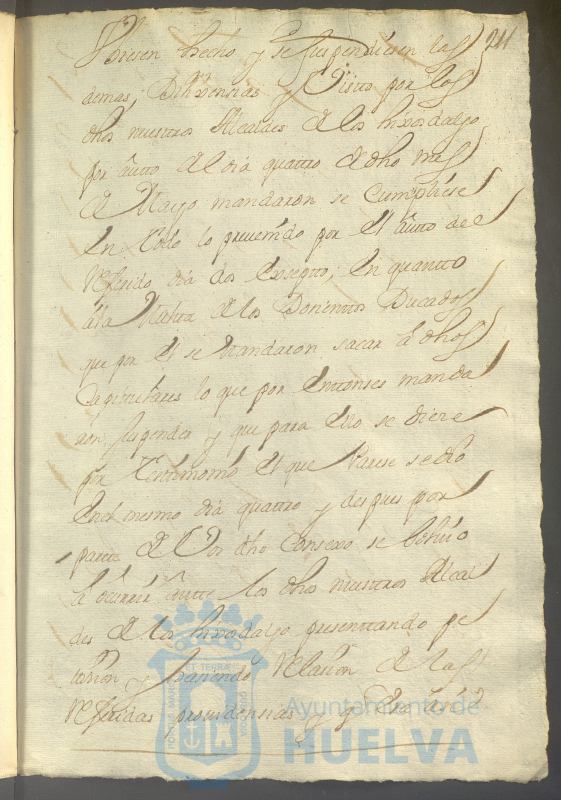 Viesen hecho y se suspendiesen las
demas, Dilixensias y Visto por los
dhos nuestros Alcaldes de los hixosdalgo
por auto de el dia quattro de dho mes
de Mayo mandaron se Cumpliese
En todo lo prevenido por el auto del
referido dia dos Exsepto, En quantto
ala Multa de los Dosientos Ducados
que por el se mandaron sacar a dhos
Capitulares lo que por Enttonses manda
ron suspender y que para Ello se diere
por testimonio el que Parese se dio
Enel mesmo dia quattro y despues por
parte de Vos dho Consexo se bolvio
a ocurrir ante los dhos nuestros Alcal
des de los hixosdalgo presenttando pe
tision y hasiendo Relasion de las
Referidas providensias y
Ayuntamiento de
HUELVA